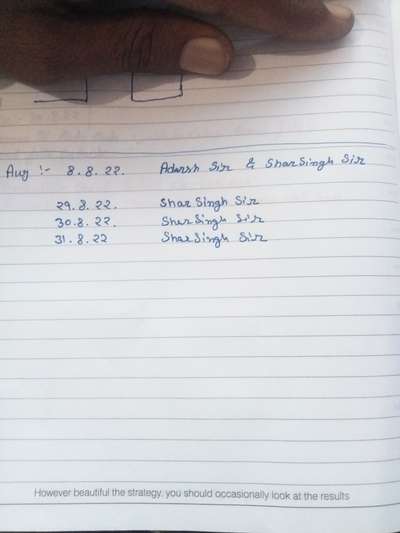 Aug :- 8.8.22. Adarsh Sir & SharSingh Sir
29.8.22. SharSingh Sir
30.8.22. SherSingh Sir
31.8.22 SharSingh Sir
However beautiful the strategy, you should occasionally look at the results